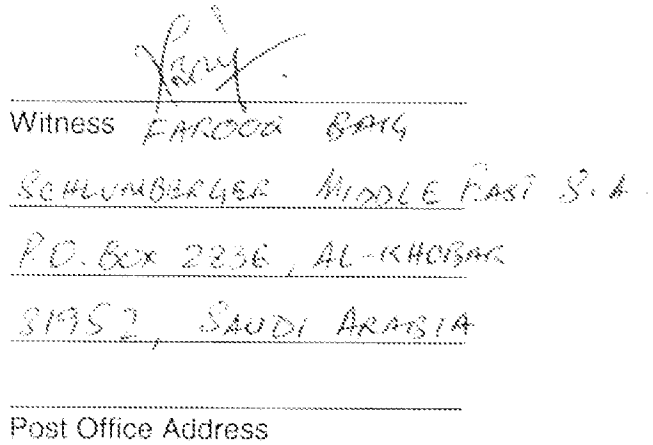 Witness FAROOQ BAIG
SCHLUMBERGER MIDDLE EAST S.A.
P.O. BOX 2836, AL-KHOBAR
31952, SAUDI ARABIA
Post Office Address